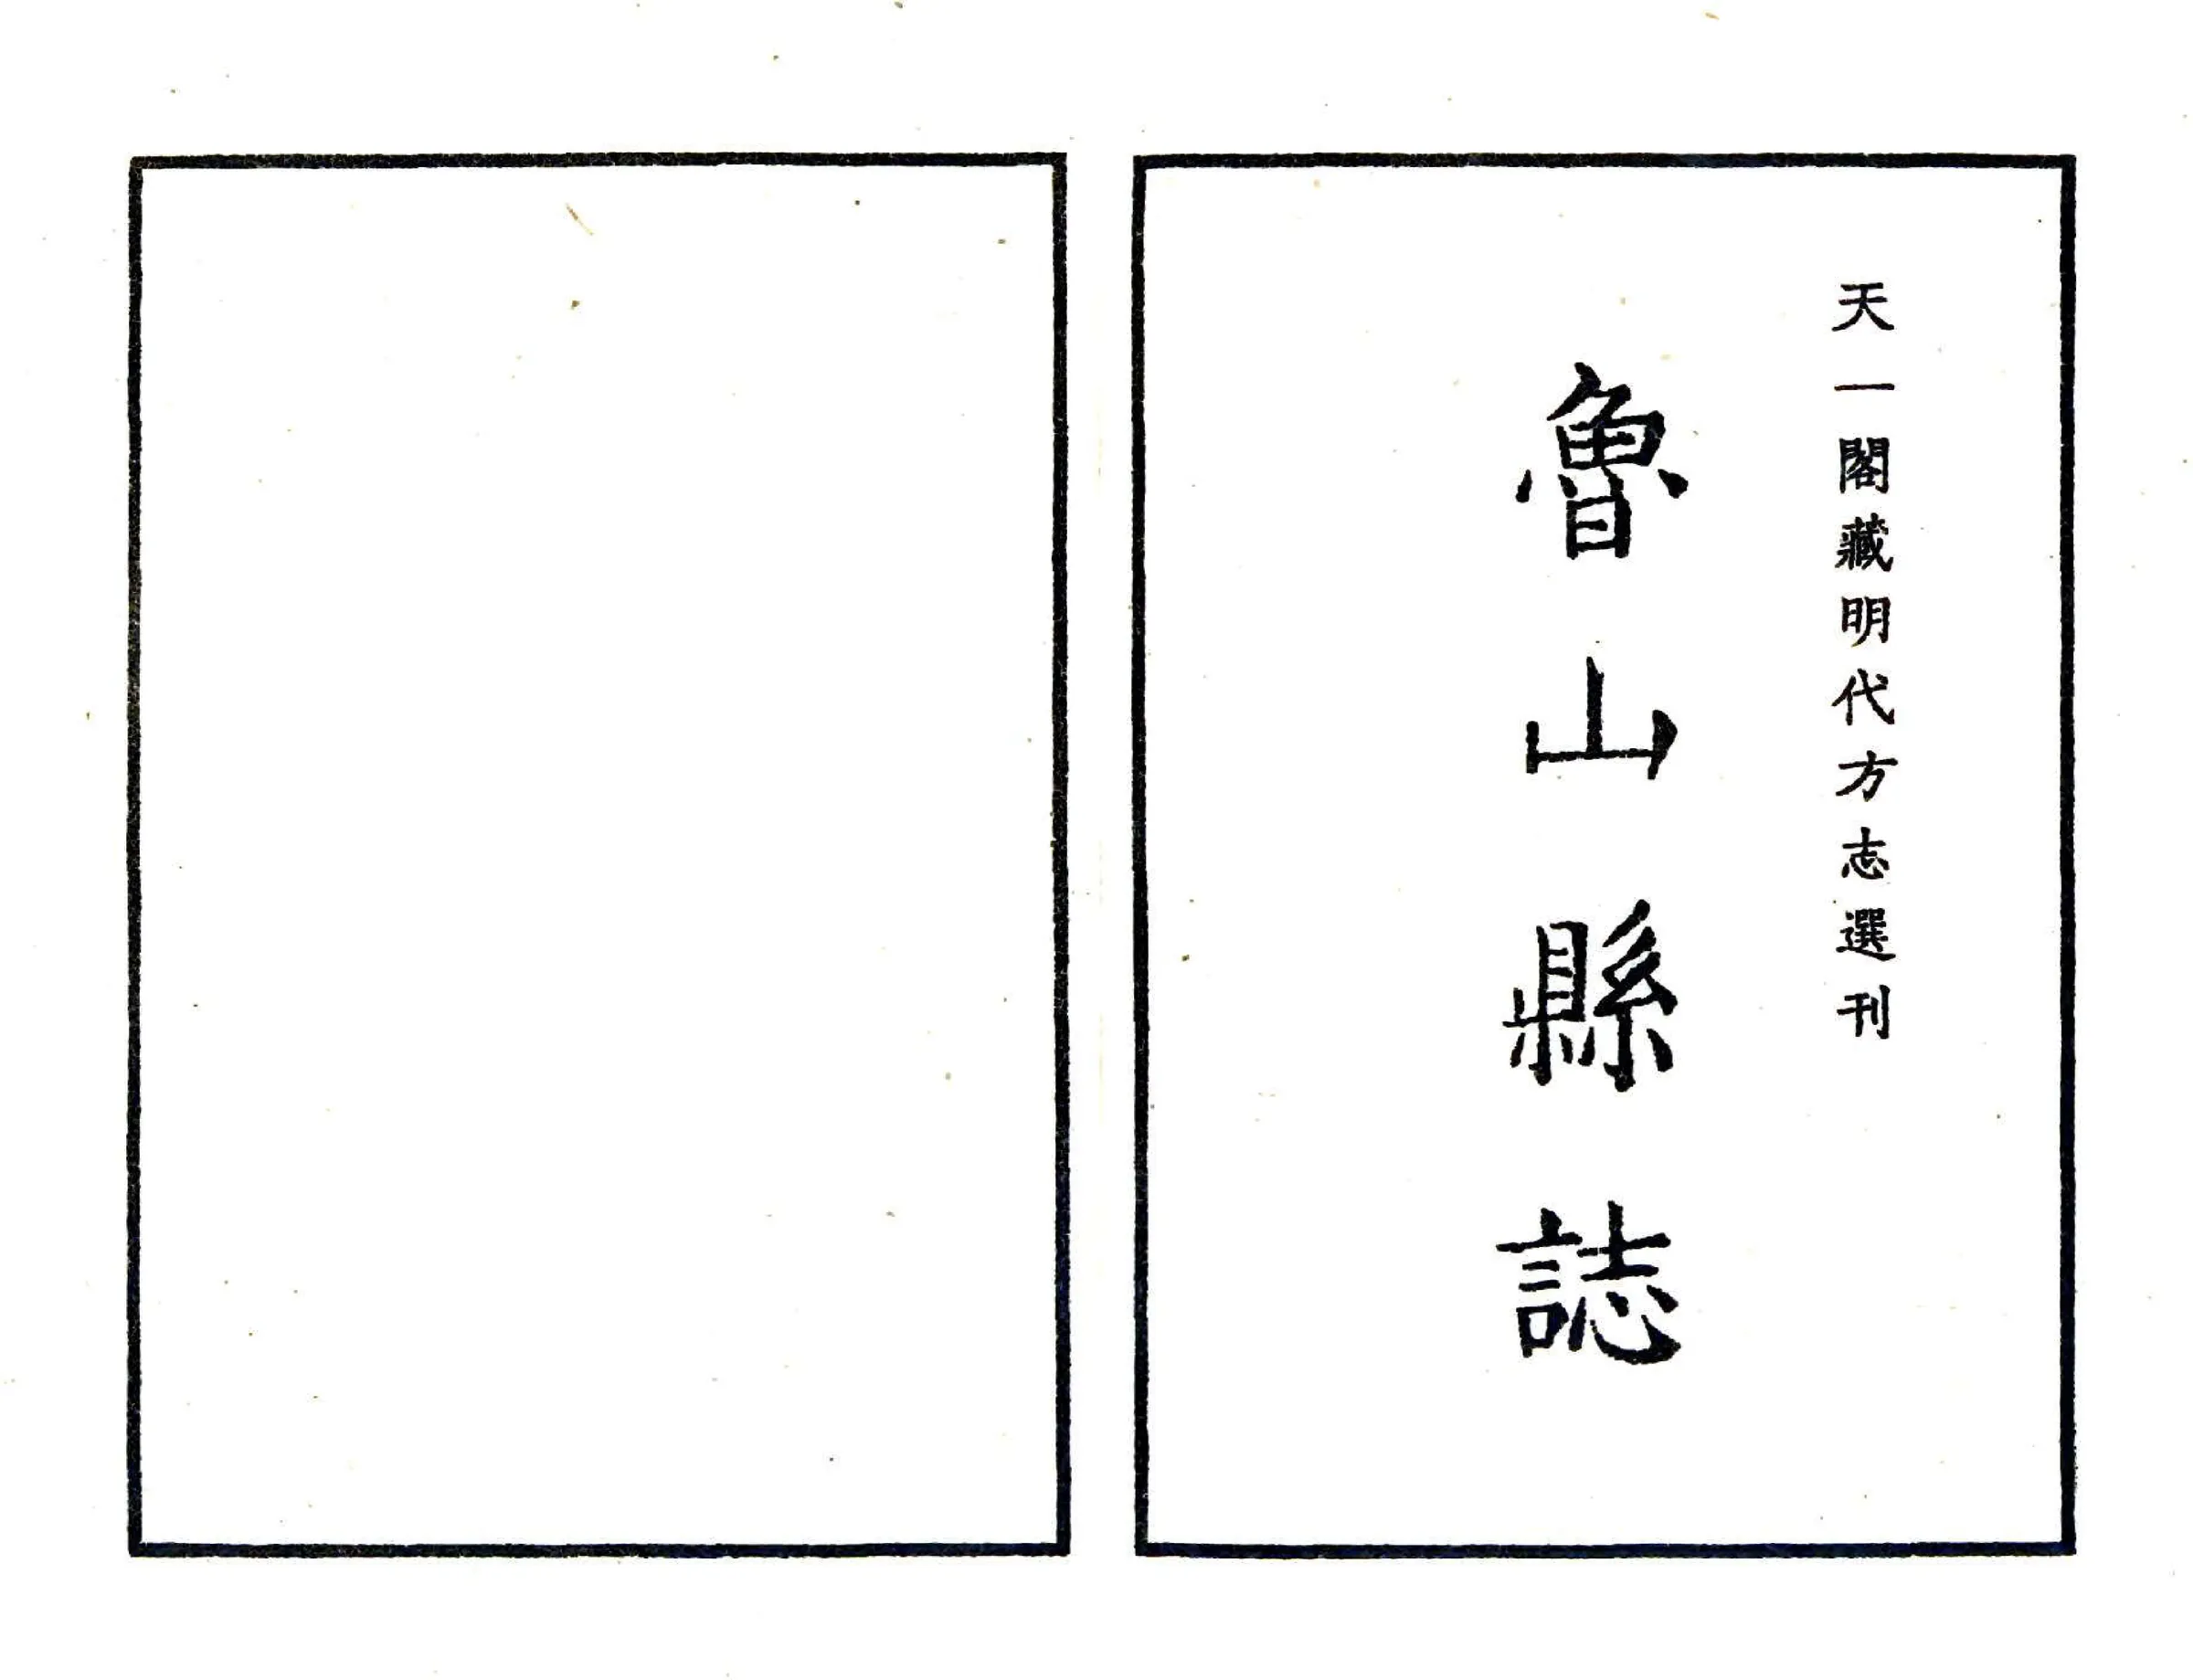 天一閣藏明代方志選刊
魯山縣誌